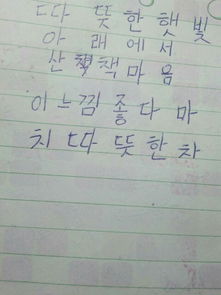 따 뜻 한 햇 빛
아 래 에 서
산 책 책 마 음
이 느 낌 좋 다 마
치 따 뜻 한 차